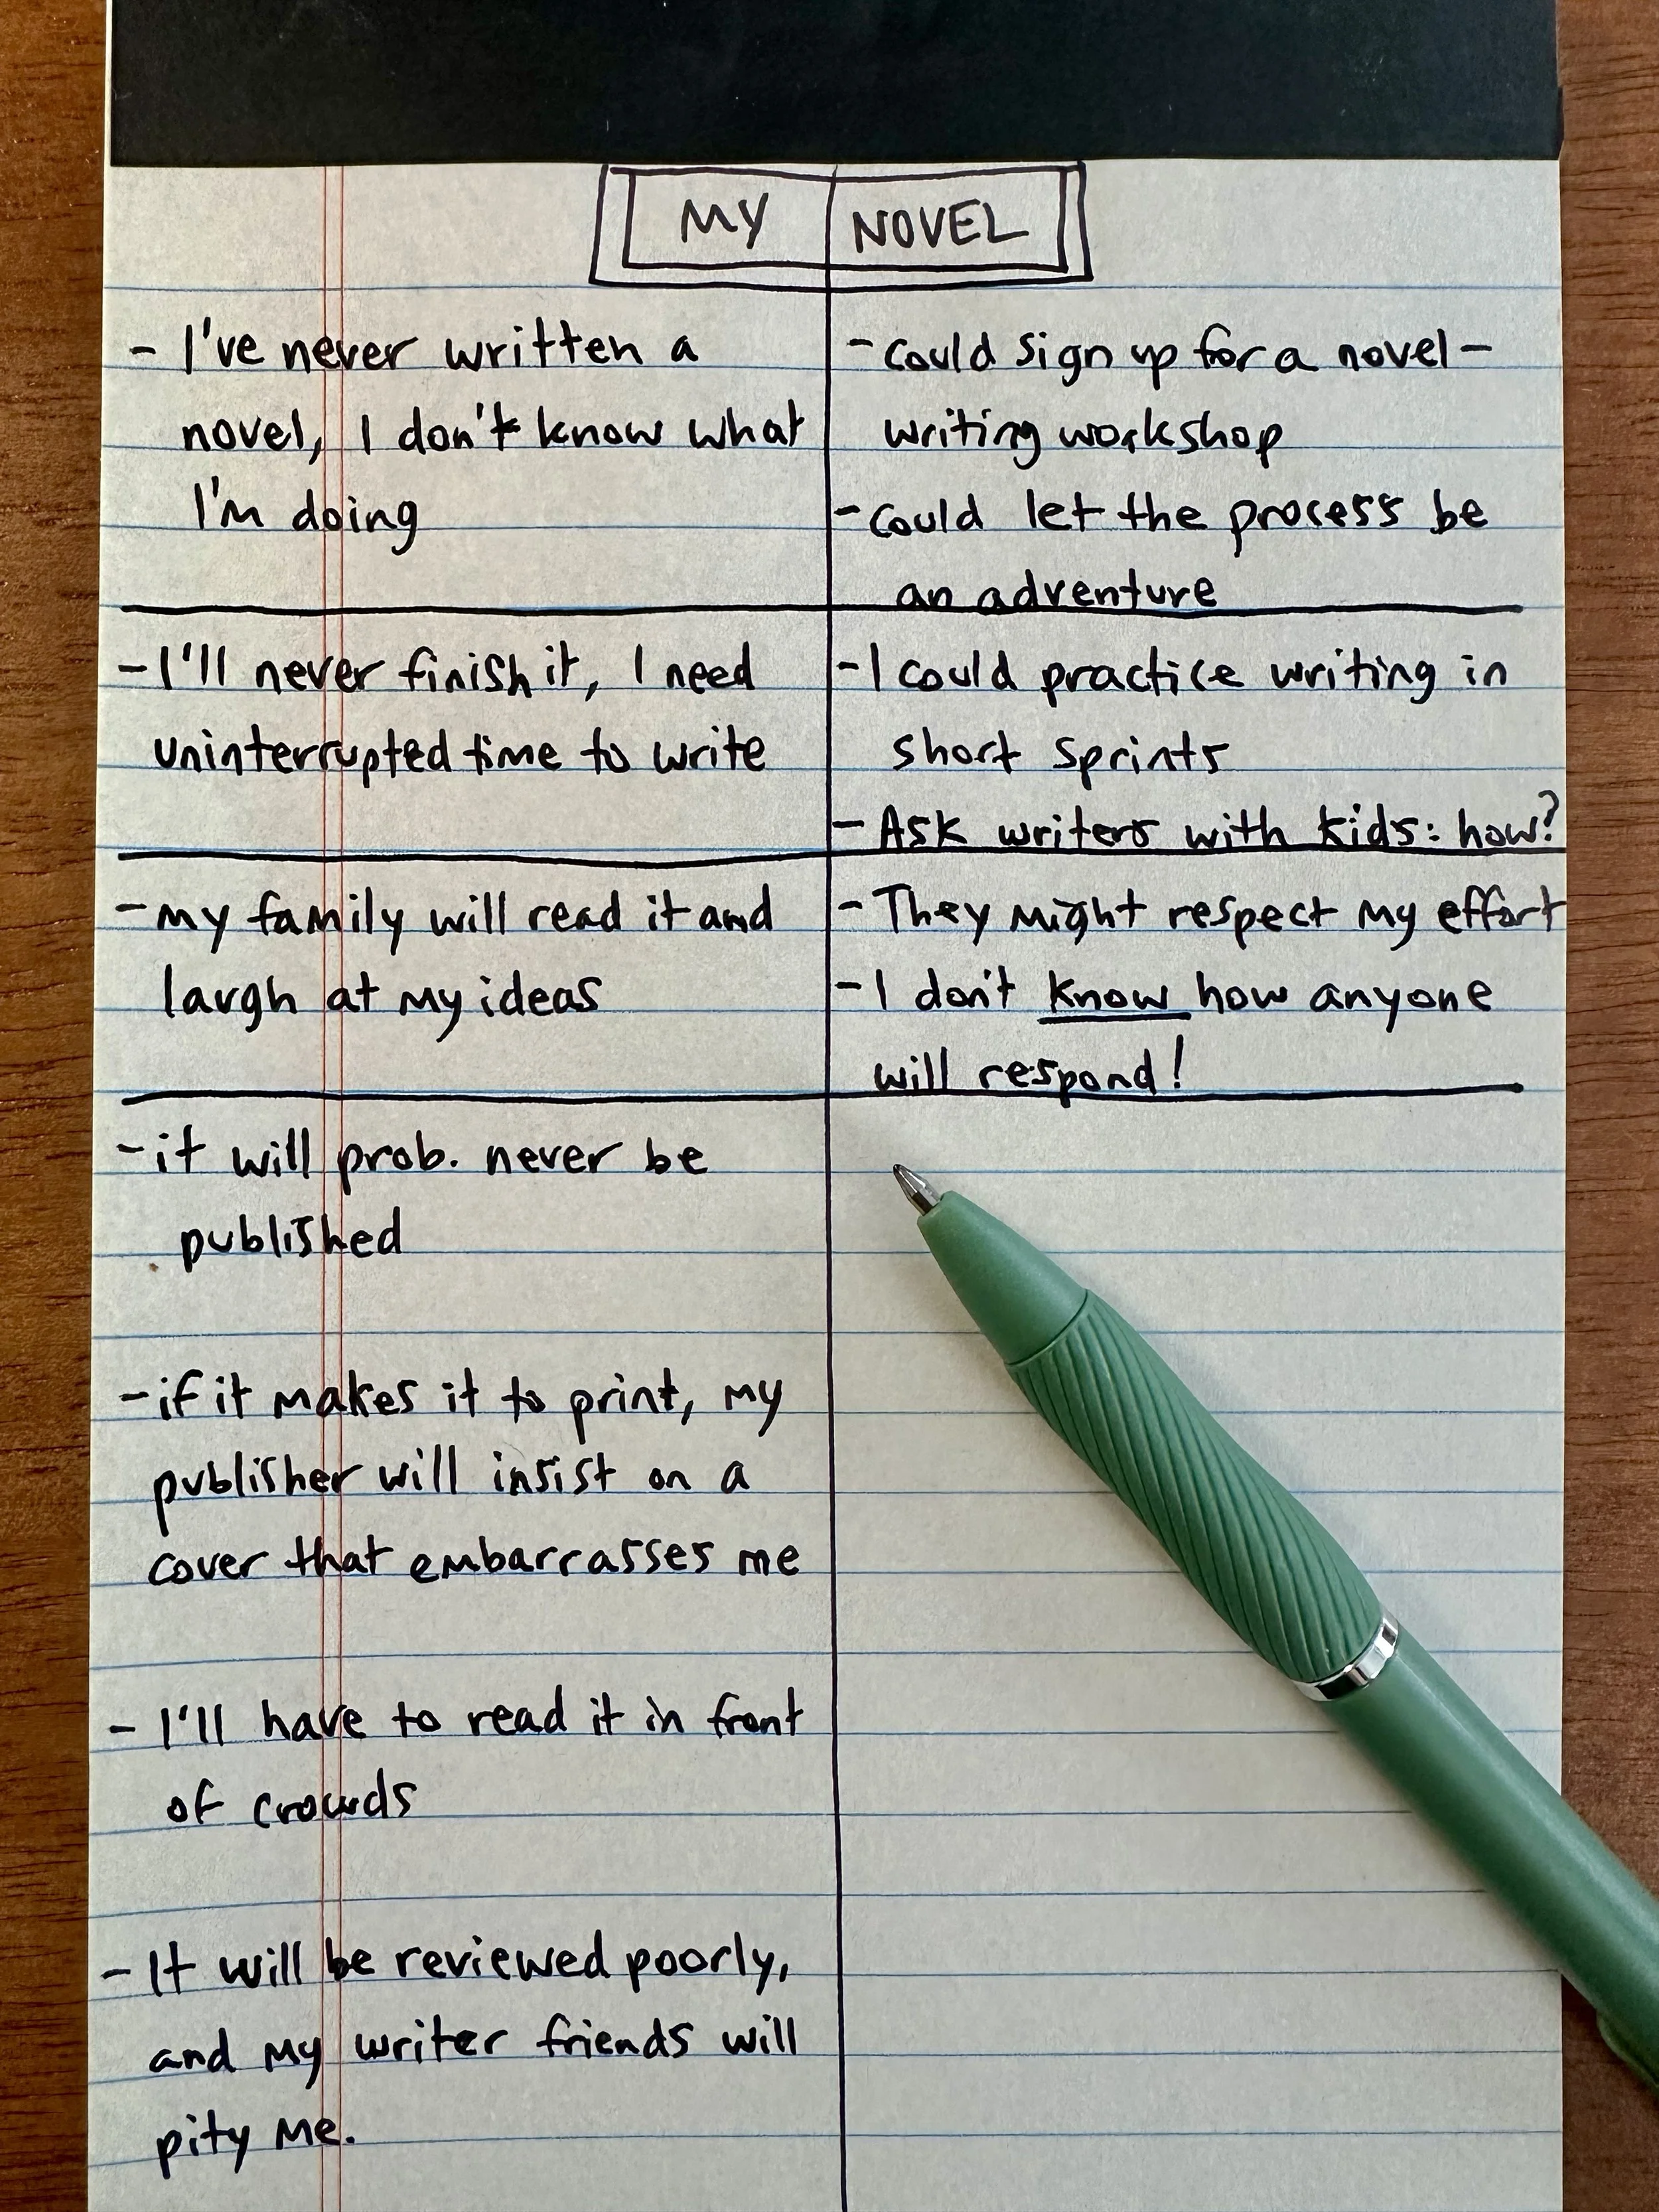 MY NOVEL
- I've never written a
novel, I don't know what
I'm doing
- Could sign up for a novel-
writing workshop
- Could let the process be
an adventure
- I'll never finish it, I need
uninterrupted time to write
- I could practice writing in
short sprints
- Ask writers with kids: how?
- My family will read it and
laugh at my ideas
- They might respect my effort
- I don't know how anyone
will respond!
- it will prob. never be
published
- if it makes it to print, my
publisher will insist on a
cover that embarrasses me
- I'll have to read it in front
of crowds
- It will be reviewed poorly,
and my writer friends will
pity me.